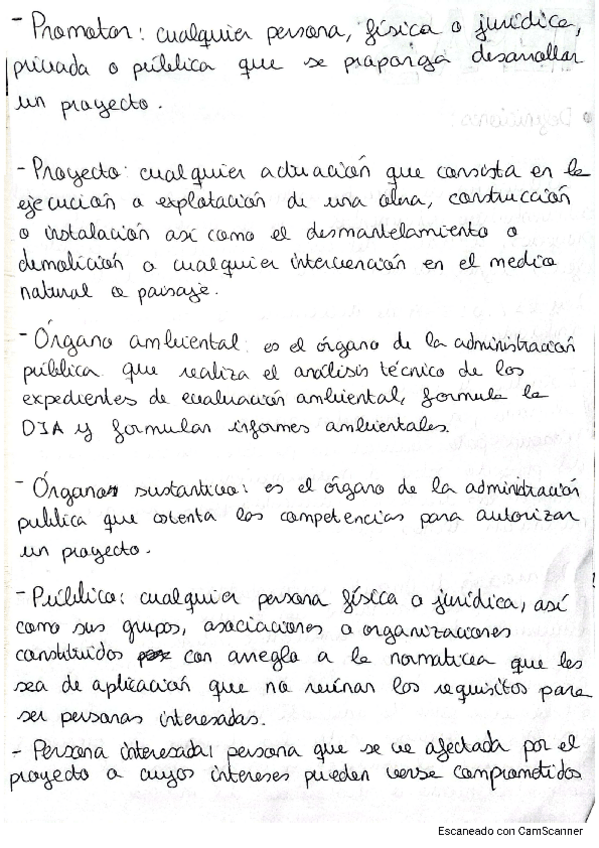 - Promotor: cualquier persona, física o jurídica,
privada o pública que se proponga desarrollar
un proyecto.
- Proyecto: cualquier actuación que consista en la
ejecución o explotación de una obra, construcción
o instalación así como el desmantelamiento o
demolición o cualquier intervención en el medio
natural o paisaje.
- Órgano ambiental: es el órgano de la administración
pública que realiza el análisis técnico de los
expedientes de evaluación ambiental, formula la
DIA y formular informes ambientales.
- Órgano sustantivo: es el órgano de la administración
publica que ostenta las competencias para autorizar
un proyecto.
- Público: cualquier persona física o jurídica, así
como sus grupos, asociaciones o organizaciones
constituidos con arreglo a la normativa que les
sea de aplicación que no reúnan los requisitos para
ser personas interesadas.
- Persona interesada: persona que se ve afectada por el
proyecto o cuyos intereses pueden verse comprometidos
Escaneado con CamScanner